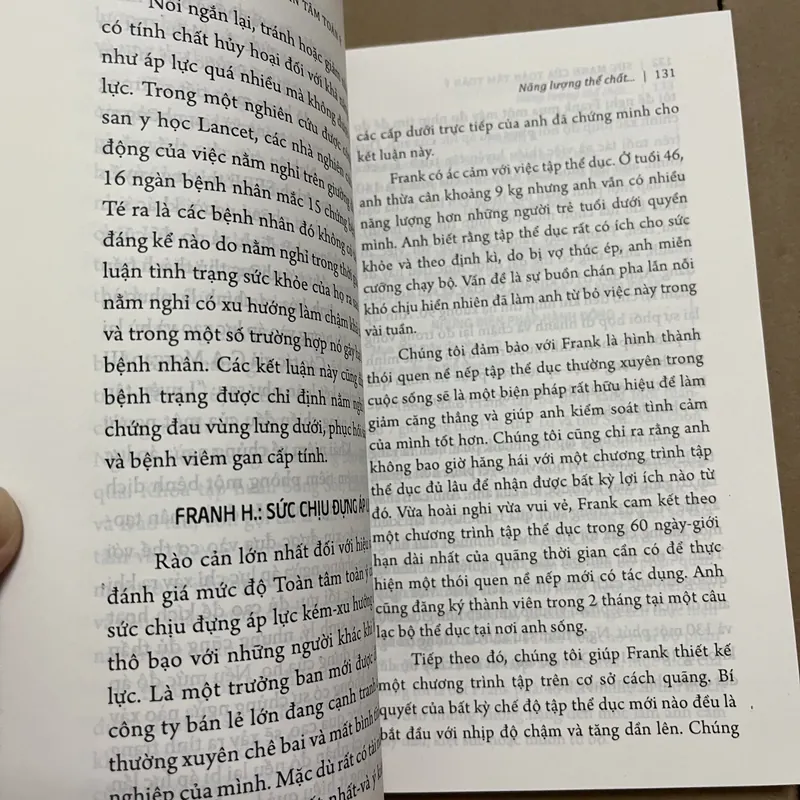 N TÂM TOÀN
Nói ngắn lại, tránh hoặc giảm
có tính chất hủy hoại đối với khả
như áp lực quá nhiều mà không
lực. Trong một nghiên cứu được
san y học Lancet, các nhà nghiên
động của việc nằm nghỉ trên giường
16 ngàn bệnh nhân mắc 15 chứng
Té ra là các bệnh nhân đó không
đáng kể nào do nằm nghỉ trong thời
luận tình trạng sức khỏe của họ ra
nằm nghỉ có xu hướng làm chậm
và trong một số trường hợp nó gây
bệnh nhân. Các kết luận này cũng
bệnh trạng được chỉ định nằm
chứng đau vùng lưng dưới, phục
và bệnh viêm gan cấp tính.
FRANH H.: SỨC CHỊU ĐỰNG ÁP
Rào cản lớn nhất đối với
đánh giá mức độ Toàn tâm toàn ý
sức chịu đựng áp lực kém-xu hướng
thô bạo với những người khác khi
lực. Là một trưởng ban mới được
công ty bán lẻ lớn đang cạnh tranh
thường xuyên chê bai và mất bình
nghiệp của mình. Mặc dù rất có
nhất-và
Năng lượng thể chất... | 131
các cấp dưới trực tiếp của anh đã chứng minh cho
kết luận này.
Frank có ác cảm với việc tập thể dục. Ở tuổi 46,
anh thừa cân khoảng 9 kg nhưng anh vẫn có nhiều
năng lượng hơn những người trẻ tuổi dưới quyền
mình. Anh biết rằng tập thể dục rất có ích cho sức
khỏe và theo định kì, do bị vợ thúc ép, anh miễn
cưỡng chạy bộ. Vấn đề là sự buồn chán pha lẫn nỗi
khó chịu hiển nhiên đã làm anh từ bỏ việc này trong
vài tuần.
Chúng tôi đảm bảo với Frank là hình thành
thói quen nề nếp tập thể dục thường xuyên trong
cuộc sống sẽ là một biện pháp rất hữu hiệu để làm
giảm căng thẳng và giúp anh kiểm soát tình cảm
của mình tốt hơn. Chúng tôi cũng chỉ ra rằng anh
không bao giờ hăng hái với một chương trình tập
thể dục đủ lâu để nhận được bất kỳ lợi ích nào từ
đó. Vừa hoài nghi vừa vui vẻ, Frank cam kết theo
một chương trình tập thể dục trong 60 ngày-giới
hạn dài nhất của quãng thời gian cần có để thực
hiện một thói quen nề nếp mới có tác dụng. Anh
cũng đăng ký thành viên trong 2 tháng tại một câu
lạc bộ thể dục tại nơi anh sống.
Tiếp theo đó, chúng tôi giúp Frank thiết kế
một chương trình tập trên cơ sở cách quãng. Bí
quyết của bất kỳ chế độ tập thể dục mới nào đều là
bắt đầu với nhịp độ chậm và tăng dần lên. Chúng